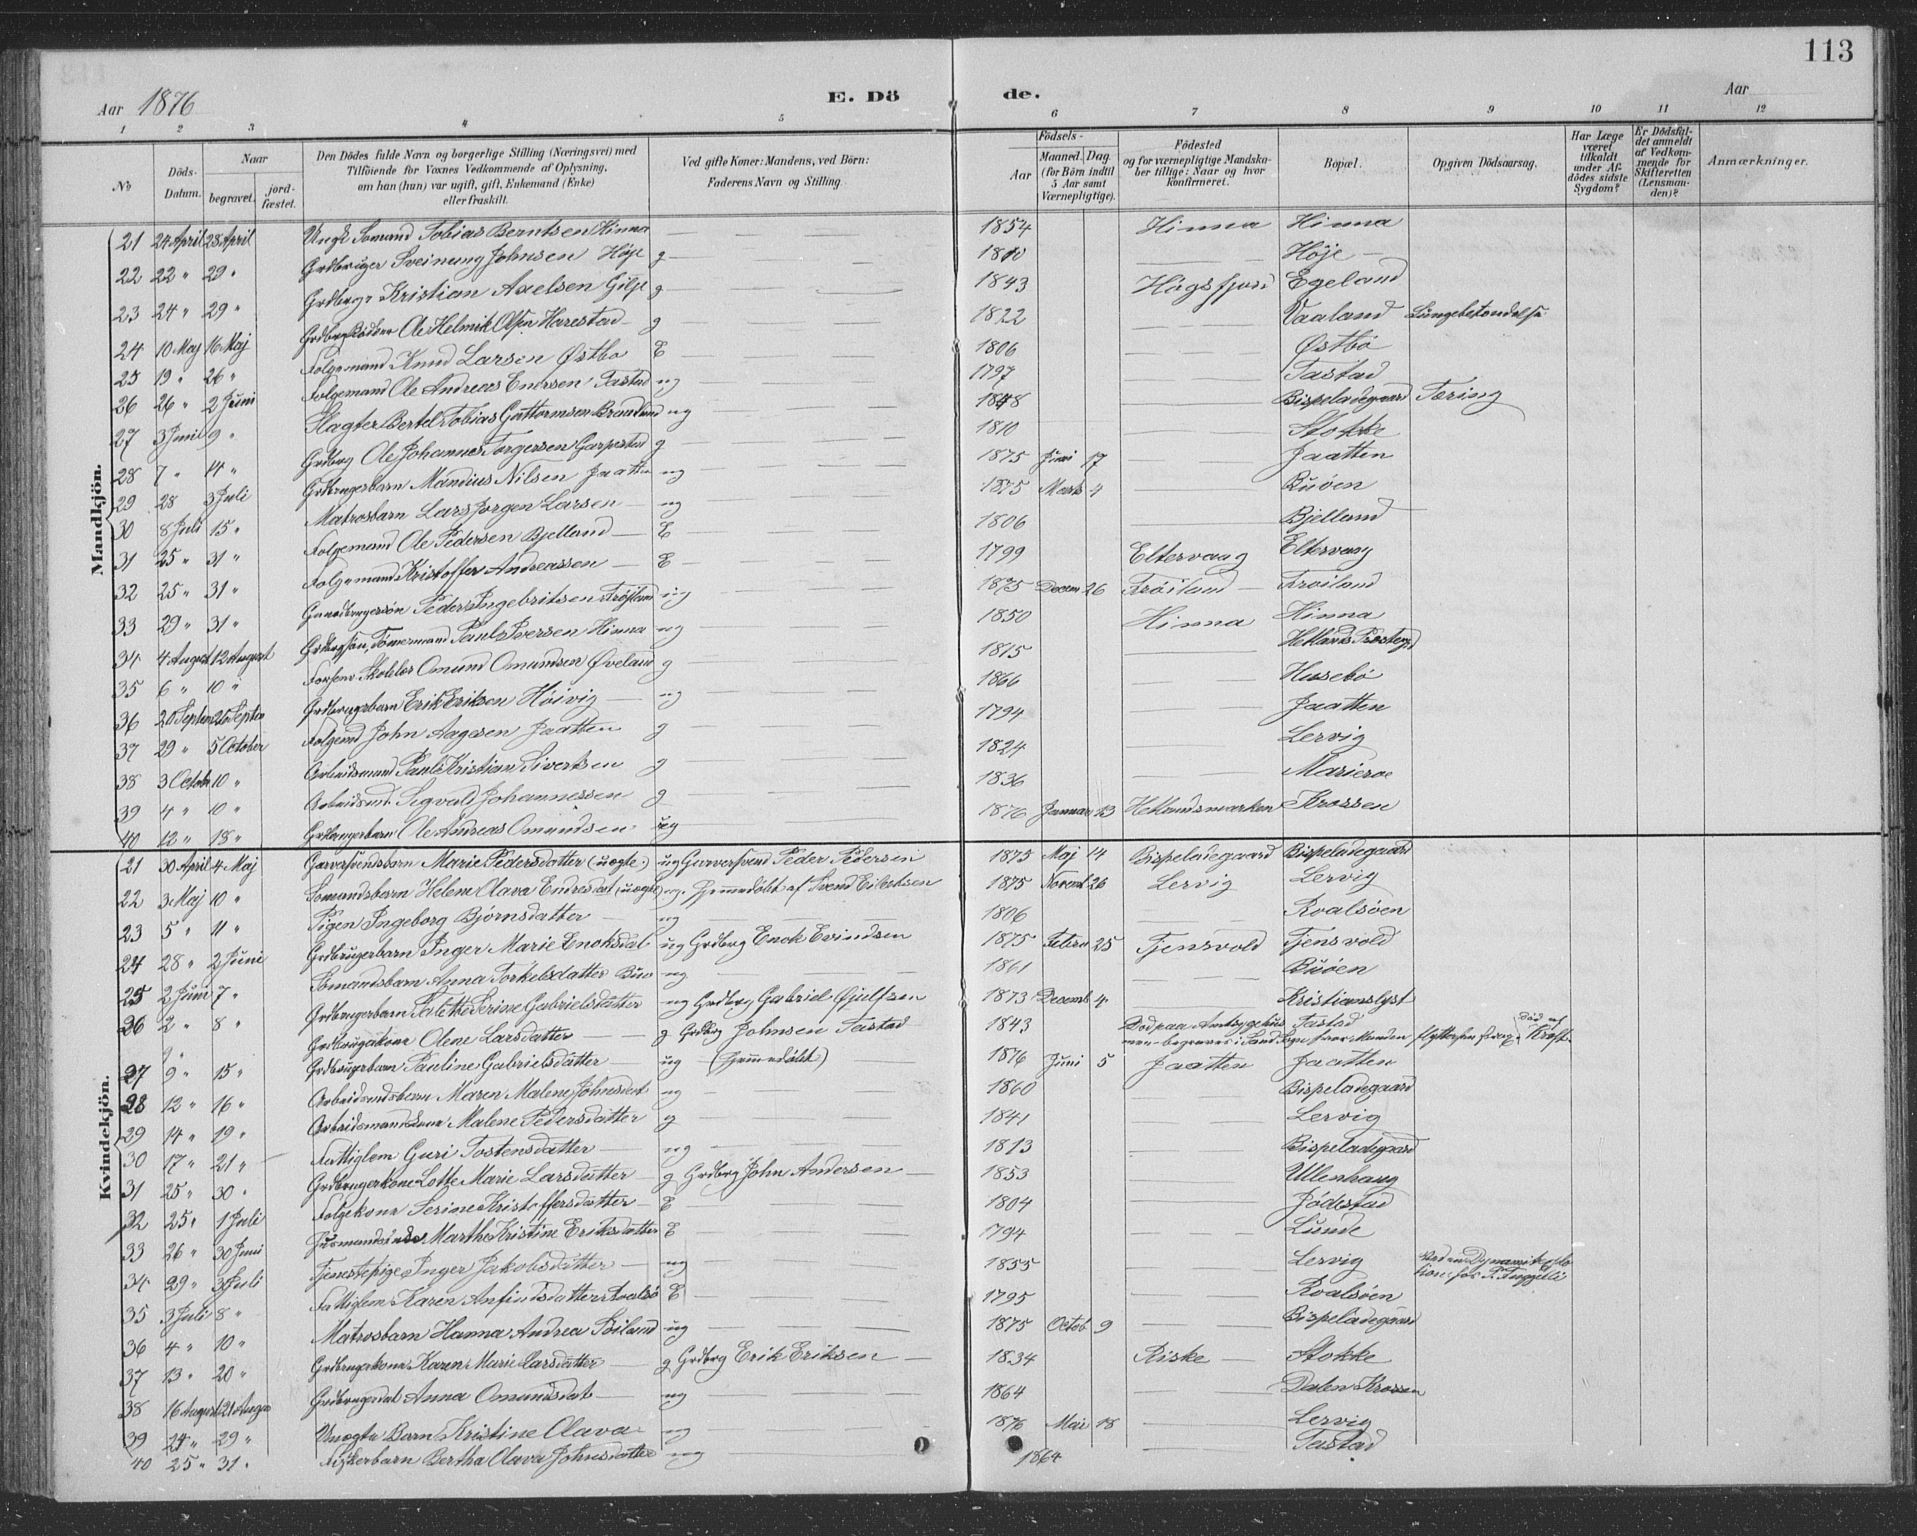 113
Aar 1876 E. Dö de. Aar
1 2 3 4 5 6 7 8 9 10 11 12
No Döds-Datum. Naar begravet. jordfæstet. Den Dödes fulde Navn og borgerlige Stilling (Næringsvei) med Tilföiende for Voxnes Vedkommende af Oplysning, om han (hun) var ugift, gift, Enkemand (Enke) eller fraskilt. Ved gifte Koner: Mandens, ved Börn: Faderens Navn og Stilling. Födsels- Aar Maaned. Dag. (for Börn indtil 5 Aar samt Værnepligtige). Födested og for værnepligtige Mandskaber tillige: Naar og hvor konfirmeret. Bopæl. Opgiven Dödsaarsag. Har Læge været tilkaldt under Afdödes sidste Sygdom? Er Dödsfaldet anmeldt af Vedkommende for Skifteretten (Lensmanden)? Anmærkninger.
Mandkjön.
21 24 April 28 April Ungk Sömand Tobias Berntsen Hinna 1854 Hinna Hinna
22 22 " 29 " Grdbruger Sveinung Johnsen Höje g 1810 Höje
23 24 " 29 " Grdbrgr Kristian Axelsen Gilje g 1843 Högsfjord Egeland
24 10 Maj 16 Maj Ole Helmik Olsen Harestad g 1822 Vaaland Lungebetændelse
25 19 " 26 " Folgemand Knud Larsen Østbø E 1806 Østbö
26 26 " 2 Juni Folgemand Ole Andreas Enersen Tastad ug 1797 Tastad
27 3 Juni 9 " Slagter Bertel Tobias Guttormsen ug 1848 Bispeladegaard Tæring
28 7 " 14 " Grdbrg Ole Johannes Torgersen Garpestad g 1810 Stokke
29 28 3 Juli Grdbrugerbarn Mandius Nilsen Jaatten ug 1875 Juni 17 Jaatten
30 8 Juli 15 " Matrosbarn Lars Jorgen Larsen ug 1875 Marts 4 Buöen
31 25 " 31 " Folgemand Ole Pedersen Bjelland E 1806 Bjelland
32 25 " 31 " Folgemand Kristoffer Andreassen E 1799 Eltervaag Eltervaag
33 29 " 31 " Peder Ingebritsen Tröjland ug 1875 Decem 26 Fröiland Froiland
34 4 August 12 August Paul Iversen Hinna ug 1850 Hinna Hinna
35 6 " 10 " Omund Omundsen Øveland g 1815 Hetlands Prestegd
36 20 Septem 26 Septem Grdbrugerbarn Erik Eriksen Höivig ug 1866 Husebö
37 29 " 5 October Folgemd John Aagesen Jaatten g 1794 Jaatten
38 3 Octob 10 " Arbeidsmand Paul Kristian Sivertsen g 1824 Lervig
39 4 " 10 " Arbeidsmd. Sigvald Johannessen g 1836 Marieroe
40 12 " 18 " Grdbrugerbarn Ole Andreas Omundsen ug 1876 Januar 13 Hetlandsmarken Krossen
Kvindekjön.
21 30 April 4 Maj Garversvendsbarn Marie Pedersdatter (uægte) ug Garversvend Peder Pedersen 1875 Maj 14 Bispeladegaard Bispeladegaard
22 3 Maj 10 " Sömandsbarn Helene Olava Endresdat (uægte) ug. Hjemmedöbt af Svend Eilertsen 1875 Novemb 26 Lervig Lervig
23 5 " 11 " Pigen Ingeborg Björnsdatter ug 1806 Roalsöen
24 28 " 2 Juni Grdbrugerbarn Inger Marie Enoksdat ug Grdbrg Enok Evindsen 1875 Febru 25 Tjensvold Tjensvold
25 2 Juni 7 " Sömandsbarn Anna Torkelsdatter Buø ug 1861 Buöen
26 2 " 8 " Grdbrugerbarn Serine Gabrielsdatter ug Grdbrg Gabriel 1873 Decemb 4 Kristianslyst
9 " Grdbrugerkone Olene Larsdatter g Grdbrg Johnsen Tastad 1843 Död paa Amtsygehus Tastad
27 9 " 15 " Grdbrugerbarn Pauline Gabrielsdatter ug (Hjemmedöbt) 1876 Juni 5 Jaatten Jaatten
28 12 " 16 " Arbeidsmdsbarn Maren Malene Johnsdat ug 1860 Bispeladegaard
29 14 " 19 " Arbeidsmandskone Malene Pedersdatter g 1841 Lervig
30 17 " 21 " Fattiglem Guri Tostensdatter ug 1813 Bispeladegaard
31 25 " 30 " Grdbrugerkone Lotte Marie Larsdatter g Grdbrg John Andersen 1853 Ullenhaug
32 25 " 1 Juli Folgekone Serine Kristoffersdatter E 1804 Jödestad
33 26 " 30 Juni Husmandsenke Marthe Kristine Eriksdatter E 1794 Lunde
34 29 " 3 Juli Tjenestepige Inger Jakobsdatter ug 1855 Lervig Ved en Dynamitexplosion
35 3 Juli 8 " Fattiglem Karen Anfindsdatter Roalsö E 1795 Roalsöen
36 4 " 10 " Matrosbarn Hanna Andrea ug 1875 Octob 9 Bispeladegaard
37 13 " 20 " Grdbrugerkone Karen Marie Larsdatter g Grdbrg Erik Eriksen 1834 Riske Stokke
38 16 August 21 August Anna Omundsdat ug 1864 Dalen Krossen
39 24 " 29 " Uægte Barn Kristine Olava ug 1876 Mai 18 Lervig
40 25 " 31 " Fiskerbarn Bertha Olava Johnsdatter ug 1864 Tastad